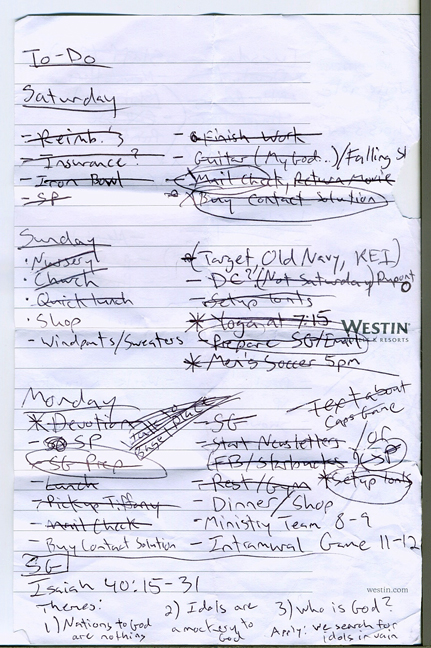 To-Do
Saturday
- Reimb.'s
- Insurance?
- Iron Bowl
- SP
- Finish Work
- Guitar (My God..)/Falling Sl
- Mail Check, Return Movie
* Buy Contact Solution
Sunday
· Nursery
· Church
· Quick lunch
· Shop
- Windpants/Sweaters
(Target, Old Navy, REI)
- DC? (Not Saturday) Dupont
- Setup fonts
* Yoga at 7:15
- Prepare SG/Email
* Men's Soccer 5pm
WESTIN
& RESORTS
Monday
* Devotion
- SP
- SG Prep
- Lunch
- Pickup Tiffany
- Mail Check
- Buy Contact Solution
Talk to
Bagel place
- SG
- Start Newsletters
- FB/Starbucks
- Rest/Gym
- Dinner/Shop
- Ministry Team 8-9
- Intramural Game 11-12
Text about
Caps Game
/or
SP
* Setup fonts
SG
Isaiah 40:15-31
Themes:
1) Nations to God
are nothing
2) Idols are
a mockery to
God
3) Who is God?
Apply: we search for
idols in vain
westin.com